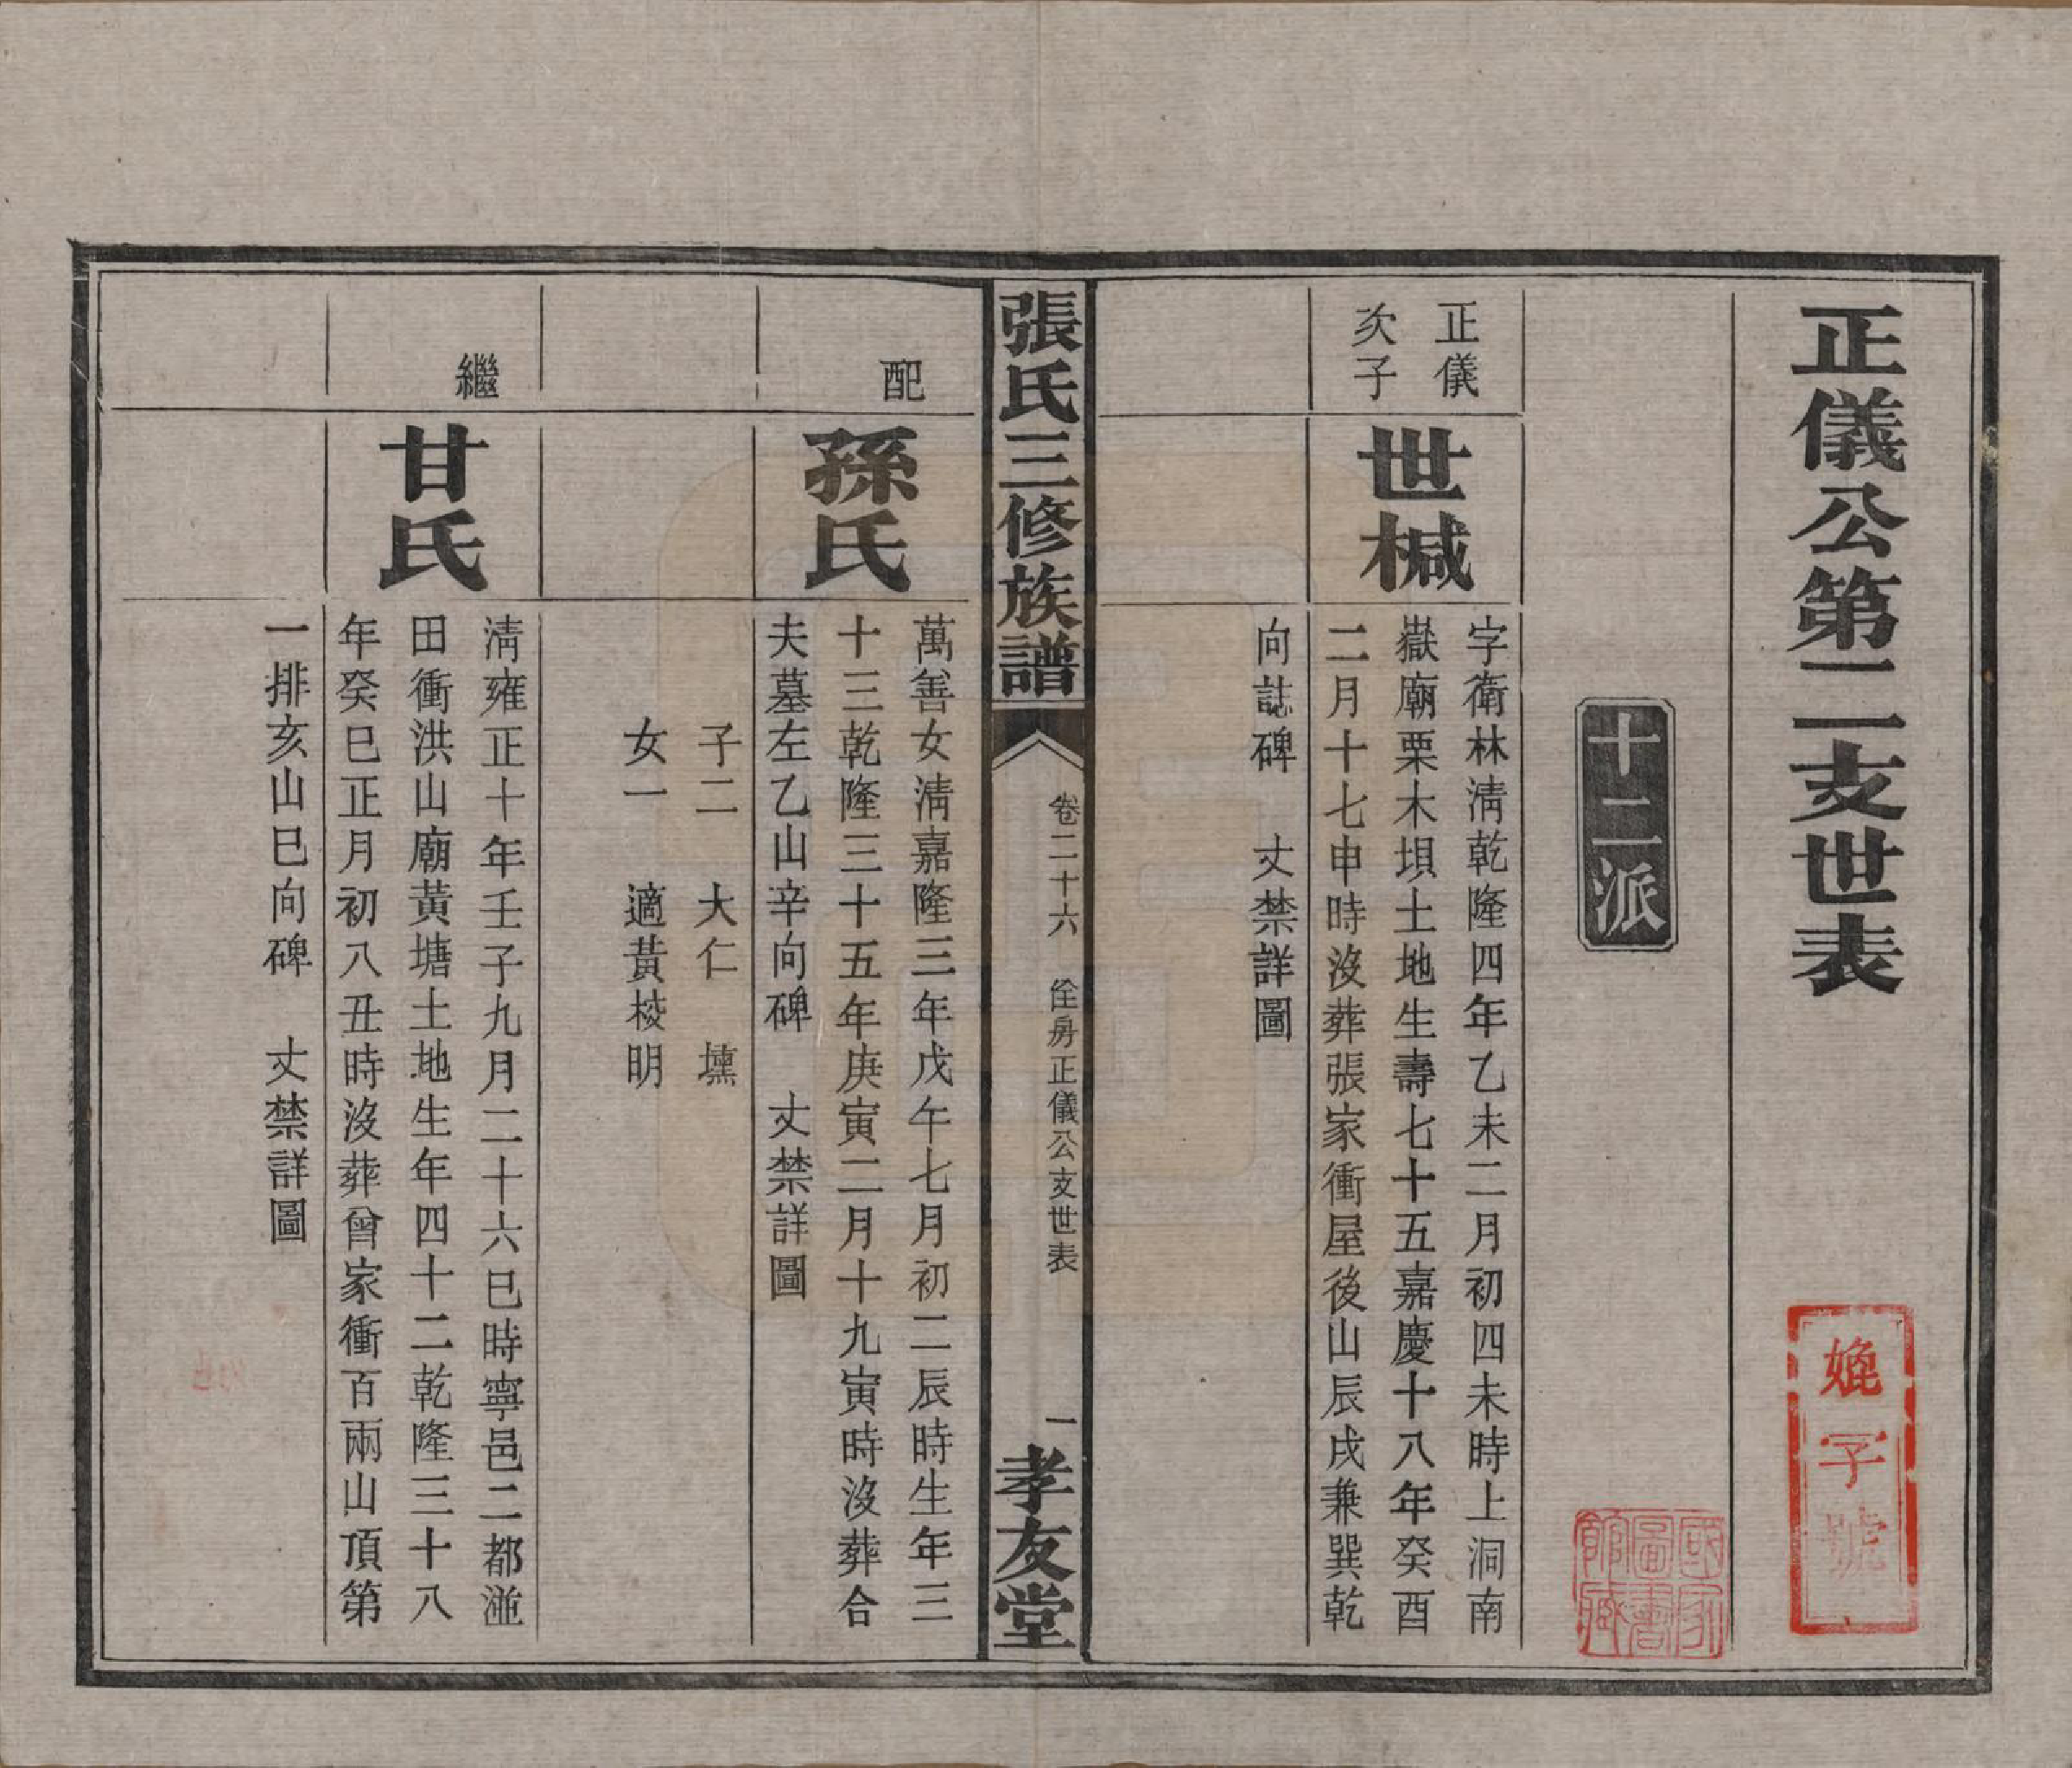 正儀公第二支世表
十二派
正儀
次子
世椷
字衛林清乾隆四年乙未二月初四未時上洞南
嶽廟栗木垻土地生壽七十五嘉慶十八年癸酉
二月十七申時沒葬張家衝屋後山辰戌兼巽乾
向誌碑　丈禁詳圖
張氏三修族譜
卷二十六　佺房正儀公支世表
一
孝友堂
配
孫氏
萬善女清嘉隆三年戊午七月初二辰時生年三
十三乾隆三十五年庚寅二月十九寅時沒葬合
夫墓左乙山辛向碑　丈禁詳圖
子二　大仁　壎
女一　適黃棱明
繼
甘氏
清雍正十年壬子九月二十六巳時寧邑二都澁
田衝洪山廟黃塘土地生年四十二乾隆三十八
年癸巳正月初八丑時沒葬曾家衝百兩山頂第
一排亥山巳向碑　丈禁詳圖
子號
國家
圖書
館藏